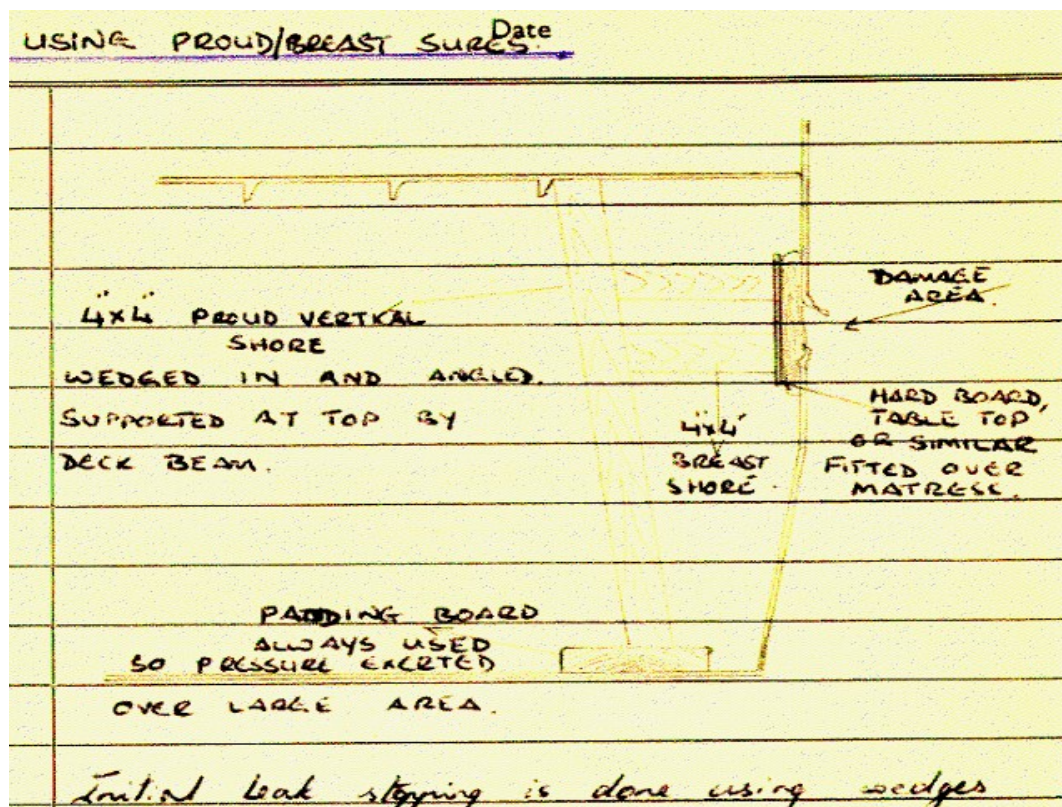 USING PROUD/BREAST SURES.
Date
DAMAGE
AREA.
4"x4" PROUD VERTICAL
SHORE
WEDGED IN AND ANGLED.
SUPPORTED AT TOP BY
DECK BEAM.
4"x4"
BREAST
SHORE.
HARD BOARD,
TABLE TOP
OR SIMILAR
FITTED OVER
MATRESS.
PADDING BOARD
ALWAYS USED
SO PRESSURE EXERTED
OVER LARGE AREA.
Initial leak stopping is done using wedges